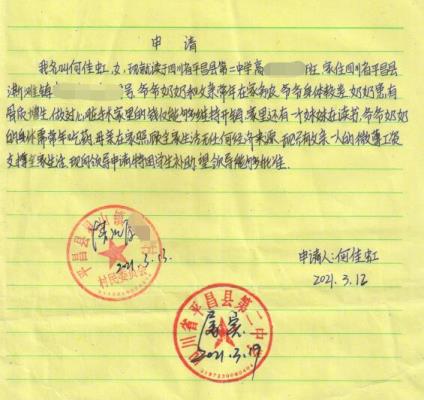 申请
我名叫何佳虹，女，现就读于四川省平昌县第二中学高 班，家住四川省平昌县
镇 号，爷爷奶奶和父亲常年在家务农，爷爷身体较差，奶奶患有
骨质增生，做过心脏手术家里的钱仅能够维持开销，家里还有一妹妹在读书，爷爷奶奶
的身体需常年吃药，母亲在家照顾全家生活无任何经济来源，现只有父亲一人的微薄工资
支撑全家生活，现向领导申请特困学生补助，望领导能够批准。
平昌县 山镇
村民委员会
2021.3.13
申请人：何佳虹
2021.3.12
四川省平昌县第二中学
属实
2021.3.19